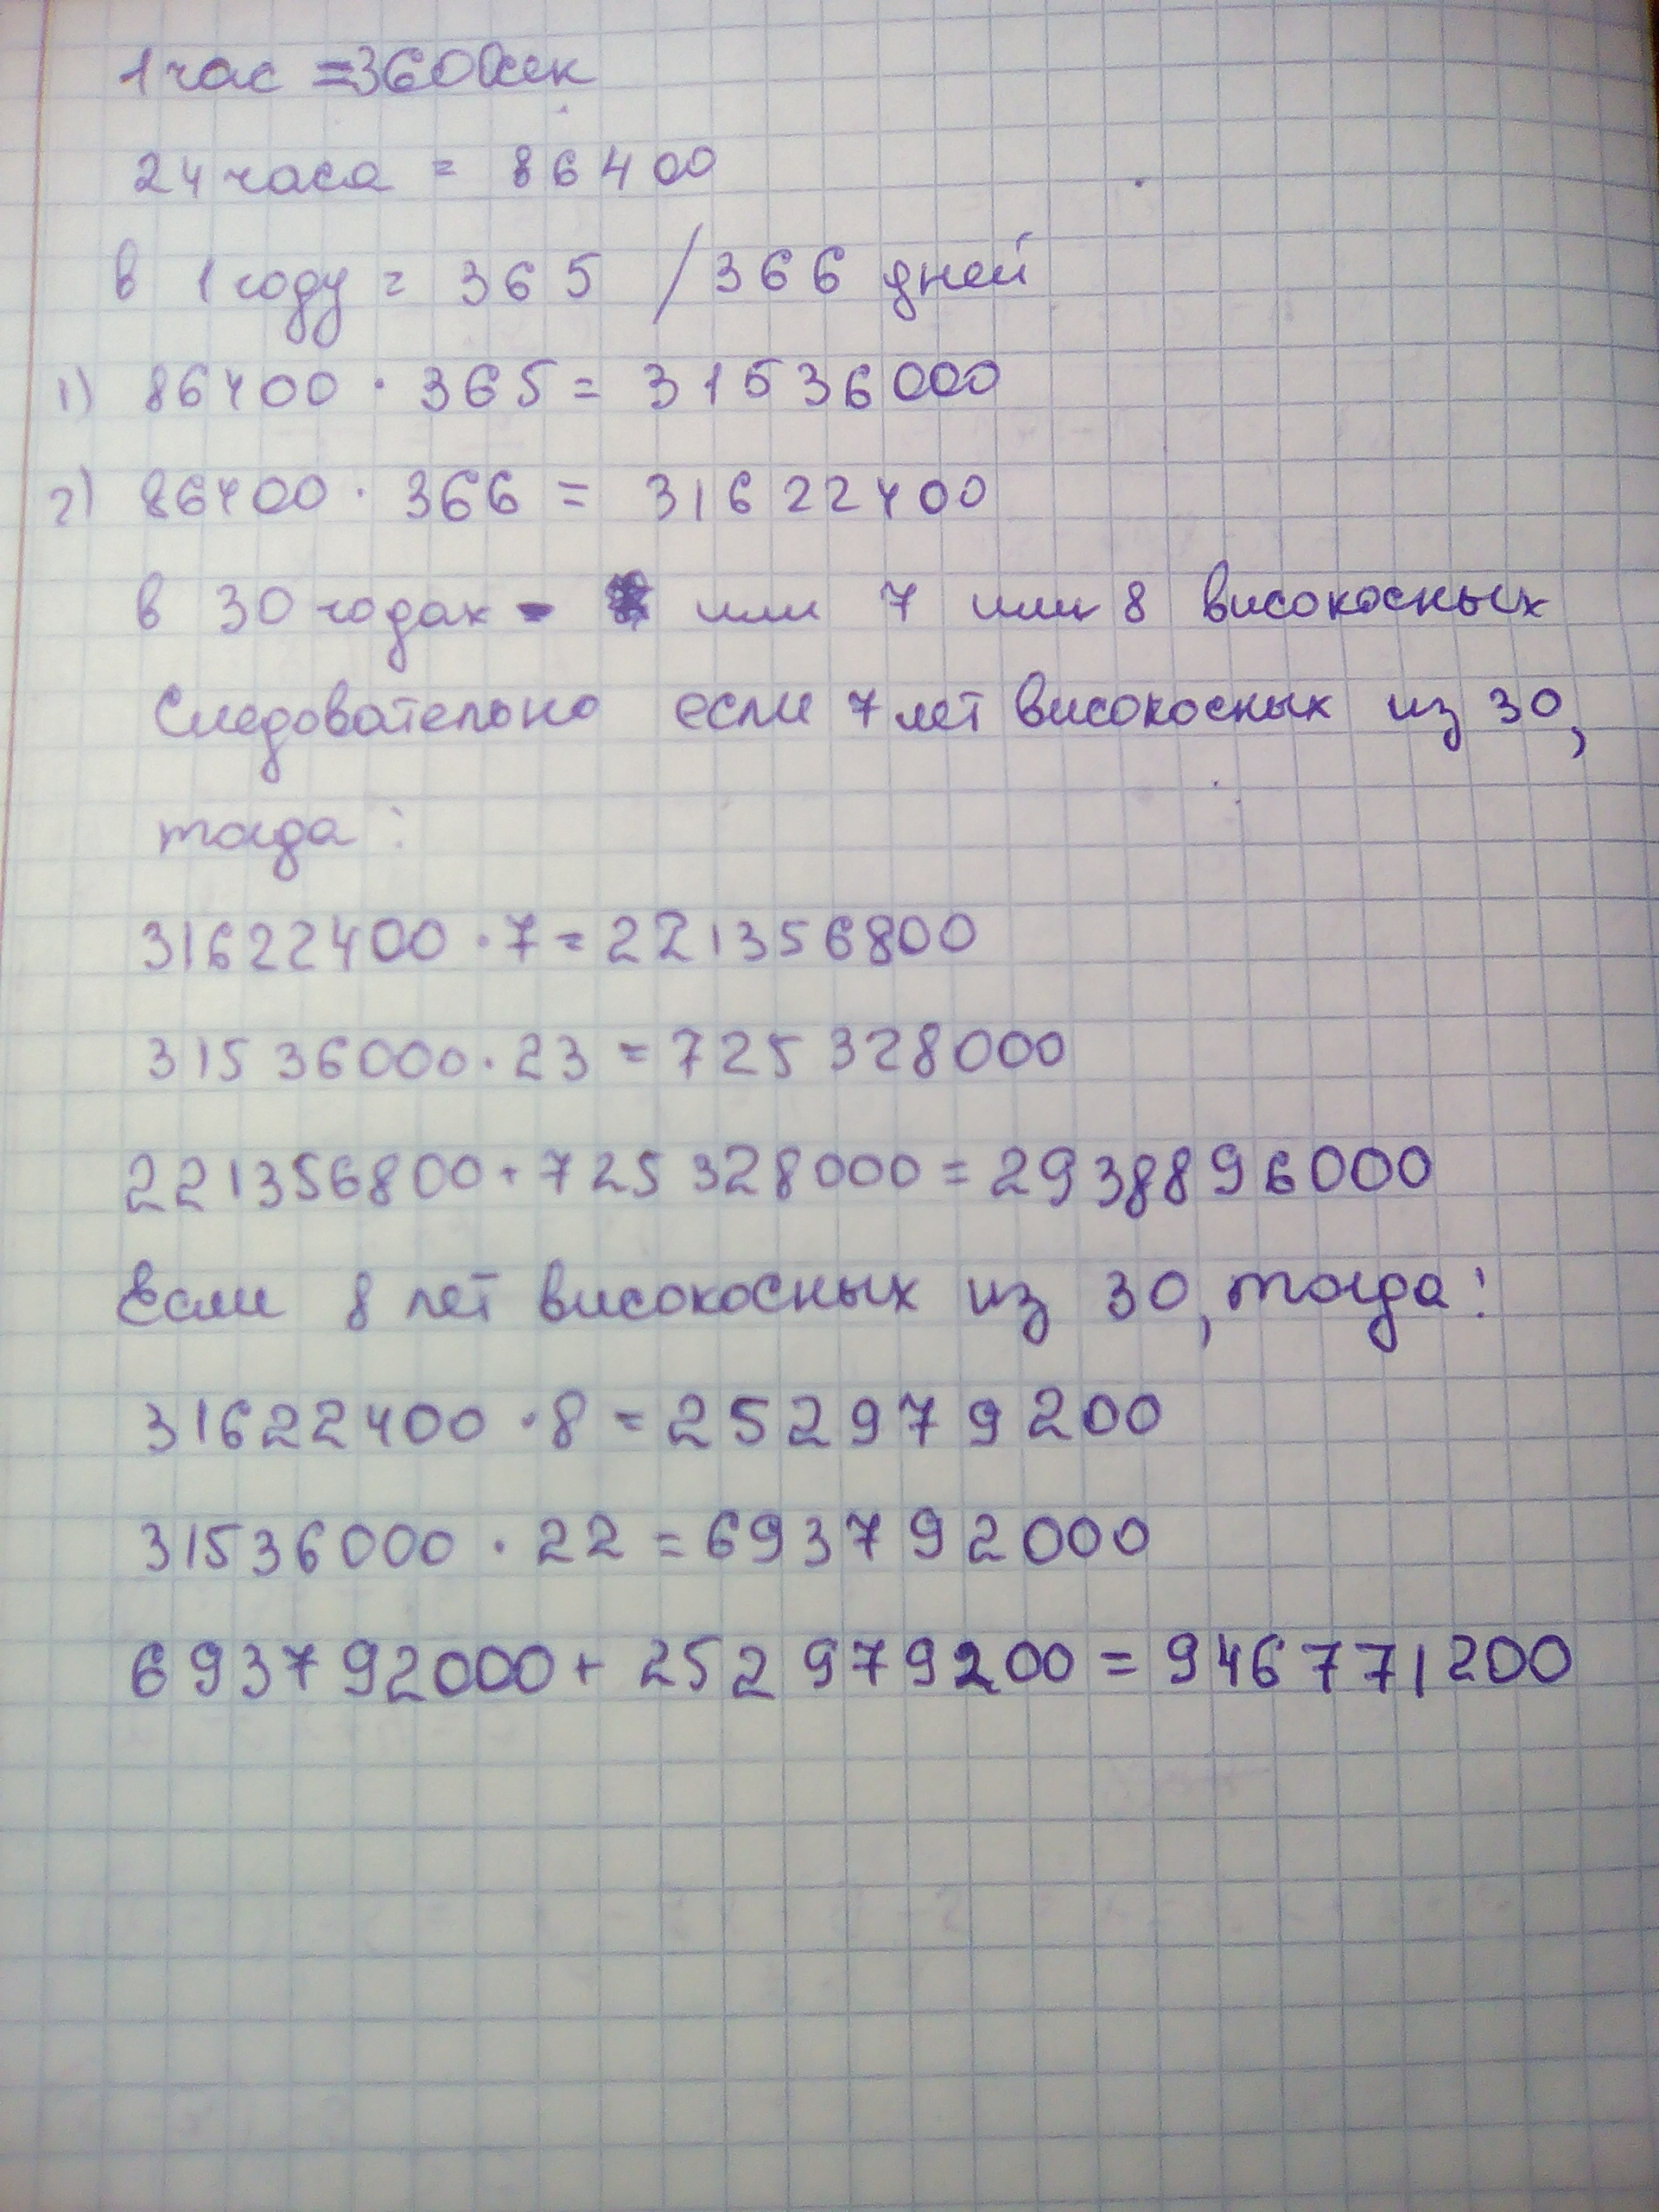 1 час = 3600сек
24 часа = 86400
в 1 году = 365 / 366 дней
1) 86400 · 365 = 31536000
2) 86400 · 366 = 31622400
в 30 годах - или 7 или 8 високосных
Следовательно если 7 лет високосных из 30,
тогда :
31622400 · 7 = 221356800
31536000 · 23 = 725328000
221356800 + 725328000 = 2938896000
Если 8 лет високосных из 30, тогда :
31622400 · 8 = 252979200
31536000 · 22 = 693792000
693792000 + 252979200 = 946771200